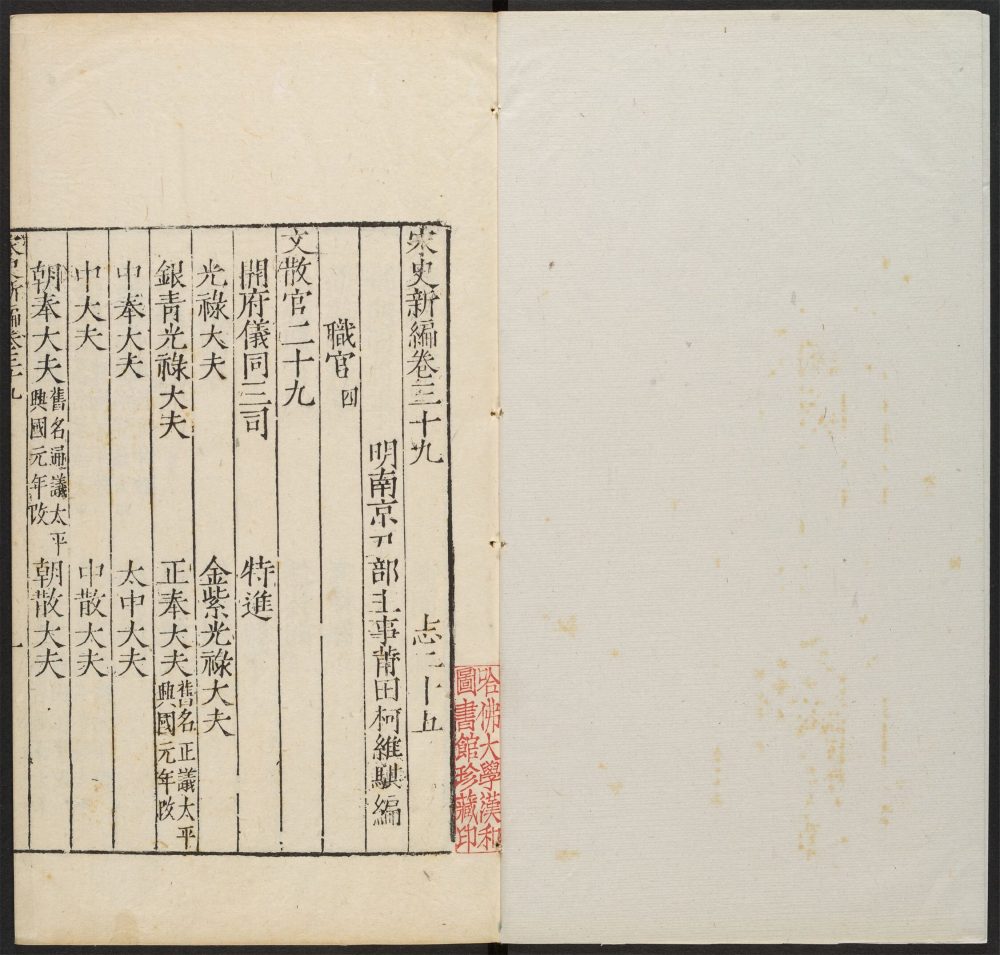 宋史新編卷三十九 志二十五
明南京戶部主事莆田柯維騏編
職官四
文散官二十九
開府儀同三司 特進
光祿大夫 金紫光祿大夫
銀青光祿大夫 正奉大夫舊名正議太平興國元年改
中奉大夫 太中大夫
中大夫 中散大夫
朝奉大夫舊名通議太平興國元年改 朝散大夫
宋史新編卷三十九 一
哈佛大學漢和
圖書館珍藏印